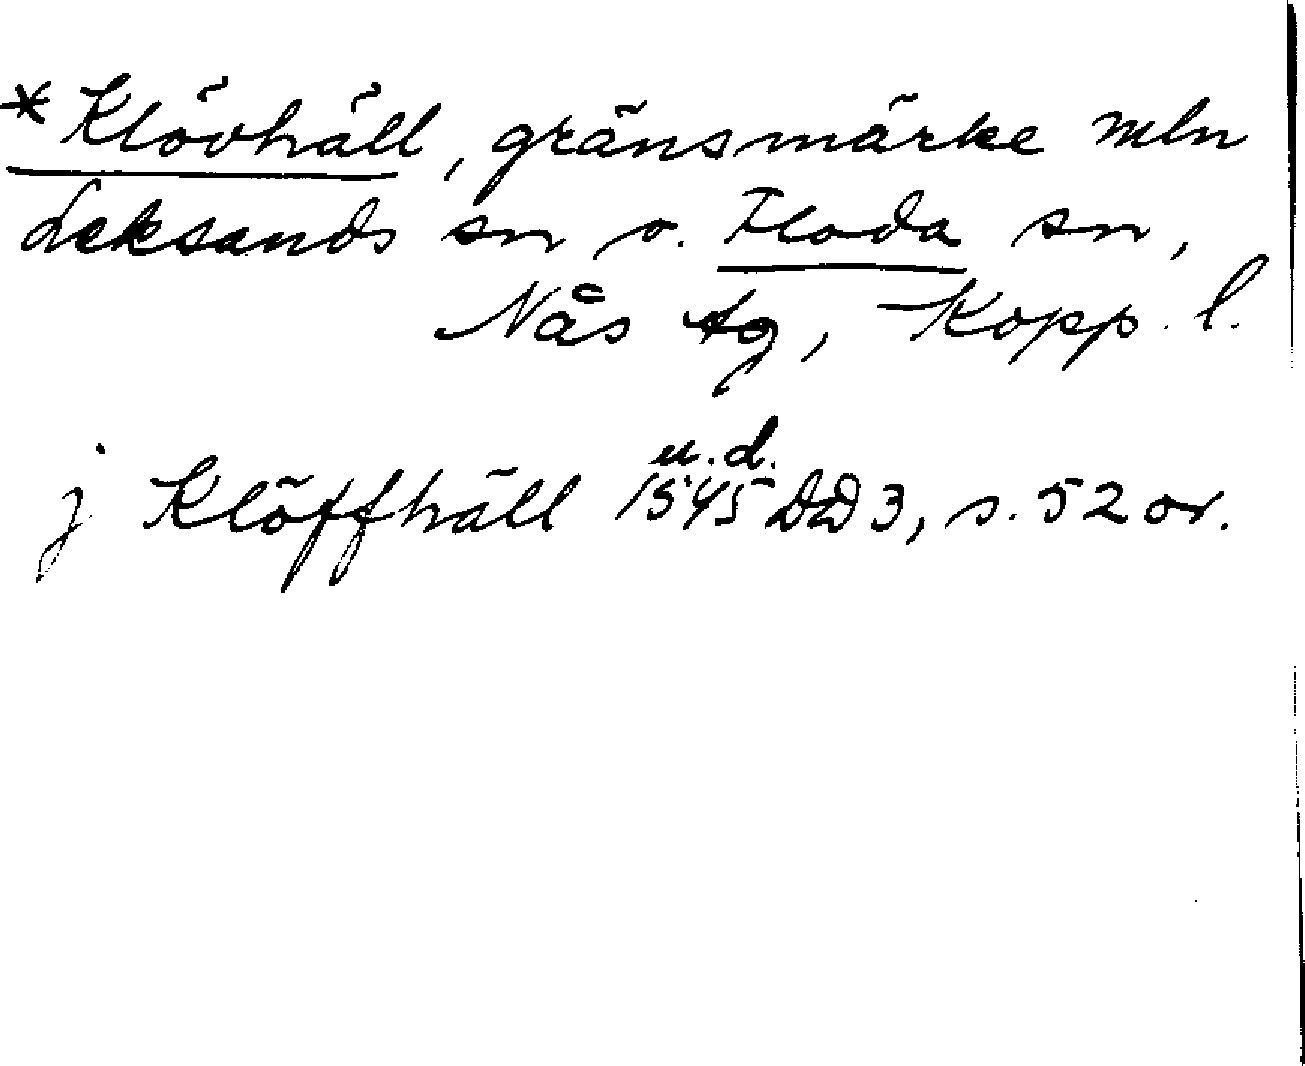 *Klövhäll, gränsmärke mln
Leksands sn o. Floda sn,
Nås tg, Kopp. l.
u.d.
j Klöffhäll 1545 DD 3, s. 52 or.